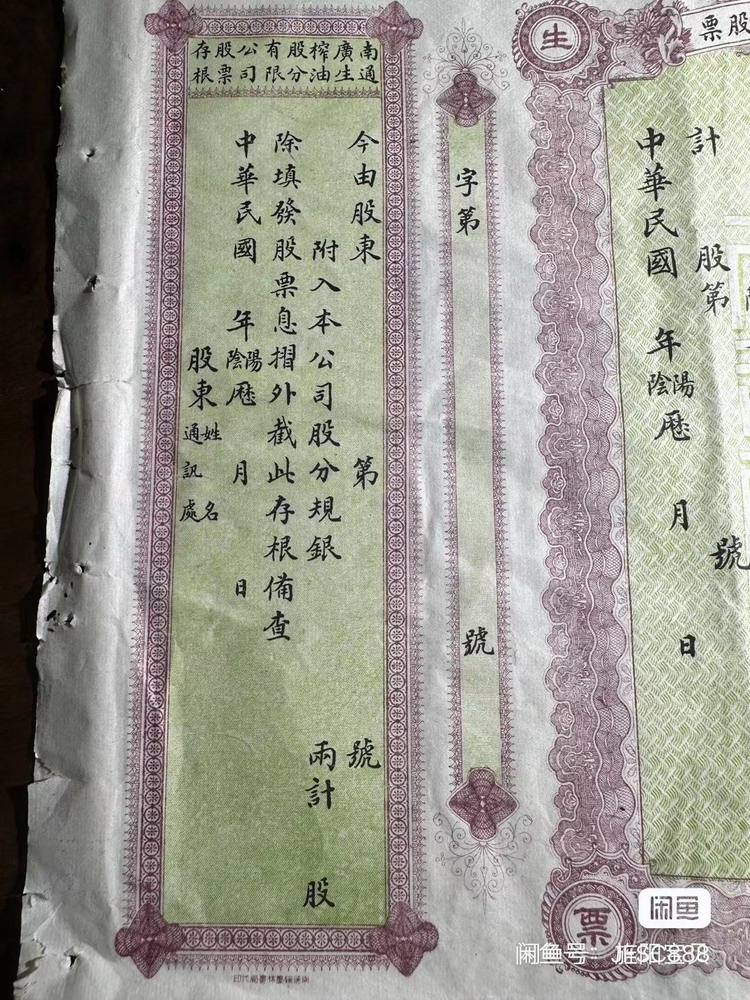 股票
生
計 股第 號
中華民國 年 陰陽曆 月 日
票
字第 號
南通廣生榨油股分有限公司股票存根
今由股東 第 號
附入本公司股分規銀 兩計 股
除填發股票息摺外截此存根備查
中華民國 年 陰陽曆 月 日
股東姓名
通訊處
南通翰墨林書局代印
闲鱼
闲鱼号：